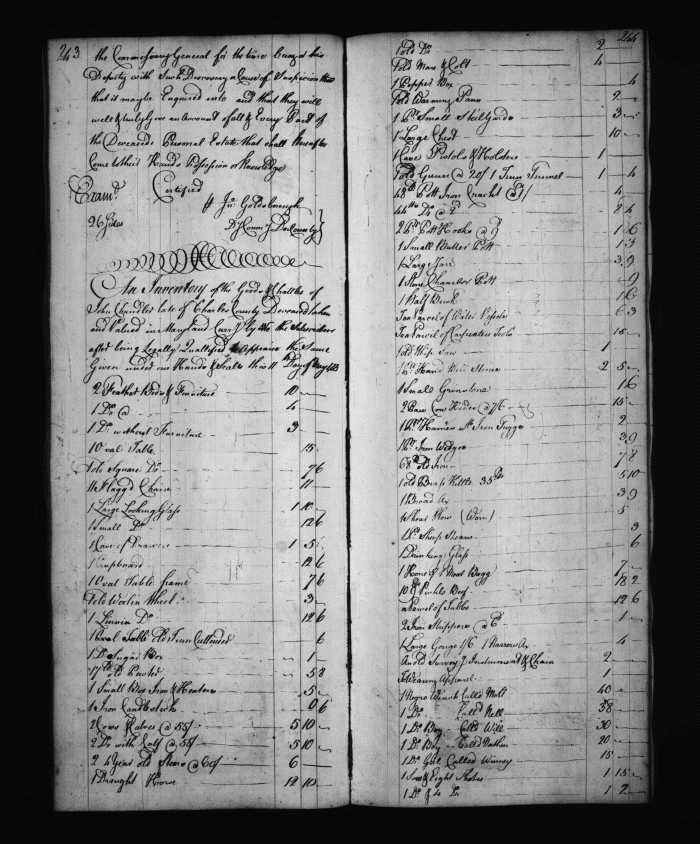 243
the Commissary General for the time being or his
Deputy with Such Discovery or Cause of Suspicion
that it maybe Enquired into and that they will
well & truly give an Account of all & Every Part of
the Deceaseds Personal Estate that shall hereafter
Come to their Hands Possession or Knowledge
Exam.d Certified
26 Sides
P Jno: Goldsborough
Dy Comry Dor County
An Inventory of the Goods & Chattles of
John Chandler late of Charles County Deceased taken
and Valued in Maryland Curr.y by the Subscribers
after being Legally Quallified to Appraise the Same
Given under our Hands & Seals this 11th Day of
2 Feather Beds & Furniture 10
1 Do @ 4
1 Do without Furniture 3
1 Oval Table 15
1 old Square Do 7 6
11 Flagg'd Chairs 11
1 Large Looking Glass 1 10
1 Small Do 12 6
1 Case of Drawers 1 5
1 Cupboard 12 6
1 Oval Table frame 7 6
1 old Woolin Wheel 3
1 Linnin Do 12 6
1 Oval Table old Iron Cullender 6
1 Do Sugar Box 1
17 lb old Pewter 5 8
1 Small Box Iron & Heaters 5
1 Iron Candlestick 0 6
2 Cows & Calves @ 55/ 5 10
2 Do with Calf @ 55/ 5 10
2 4 Year old Steers @ 60/ 6
1 Draught Horse 12 10
244
1 old Do 2
1 old Mare & Colt 4
1 Pepper Box 4
1 old Warming Pann 2
1 Pr Small Stillyards 3
1 Large Chest 10
1 Case Pistols & Holders 1
1 old Gunn @ 20/ 1 Iron Funnel 1 4
48 lb Pott Iron Crackt @ 1/ 4
44 lb Do @ 2 8 4
2 Pr Pott Hooks @ 9 1 6
1 Small Butter Pott 1 3
1 Large Jarr 3 9
1 Stone Chamber Pott 9
1 Half Bush 1 6
1 old Whip Saw 1
1 Pr Hand Mill Stones 2 5
1 Small Grindstone 1 6
2 Raw Cow Hides @ 7/6 15
1 Pr Hames wth Iron Tuggs 2
1 Pr Iron Wedges 3 9
68 lb old Iron 7 8
1 old Brass Kettle 35 lb 5 10
1 Broad Ax 3 9
1 Shear Plow (Worn) 5
1 Pr Sheep Shears 3
1 Drinking Glass 6
1 Hone & 1 Meal Bagg 7
10 Pickle Beef 18 2
a Parcel of Tubbs 12 6
2 Iron Skippers @ 6 1
1 Large Gouge 1/6 1 Narrow Ax 4
An old Survey.g Instrument & Chain 2
Wearing Apparel 1
1 Negro Wench Call'd Moll 40
1 Do Call'd Nell 38
1 Do Boy Call'd Will 30
1 Do Boy Call'd Nathan 20
1 Do Girl Called Winney 15
1 Sow & Eight Shotes 1 15
1 Do & 4 Do 1 2